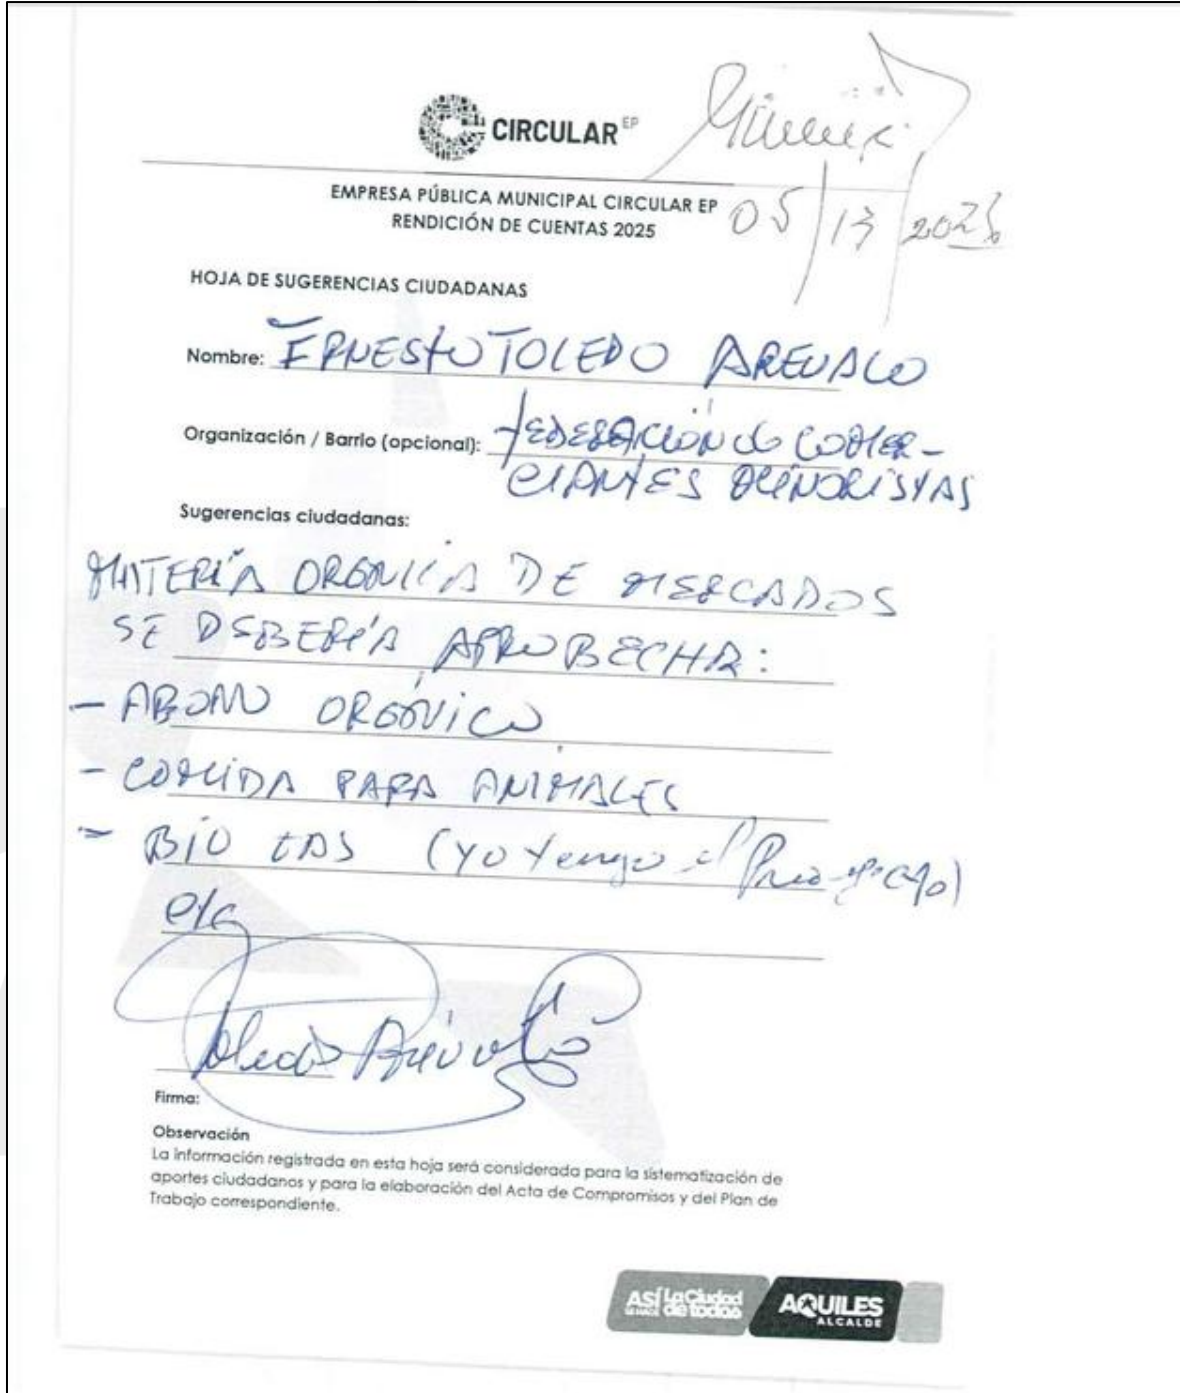 CIRCULAR EP
EMPRESA PÚBLICA MUNICIPAL CIRCULAR EP
RENDICIÓN DE CUENTAS 2025
05/13/2026
HOJA DE SUGERENCIAS CIUDADANAS
Nombre: ERNESTO TOLEDO AREVALO
Organización / Barrio (opcional): FEDERACIÓN de COMER-
CIANTES MINORISTAS
Sugerencias ciudadanas:
MATERÍA ORGÁNICA DE MERCADOS
SE DEBERÍA APROBECHAR:
- ABONO ORGÁNICO
- COMIDA PARA ANIMALES
- BIO GAS (YO tengo el Proyecto)
etc
Toledo Arévalo
Firma:
Observación
La información registrada en esta hoja será considerada para la sistematización de
aportes ciudadanos y para la elaboración del Acta de Compromisos y del Plan de
Trabajo correspondiente.
ASÍ SE HACE La Ciudad de todos
AQUILES ALCALDE